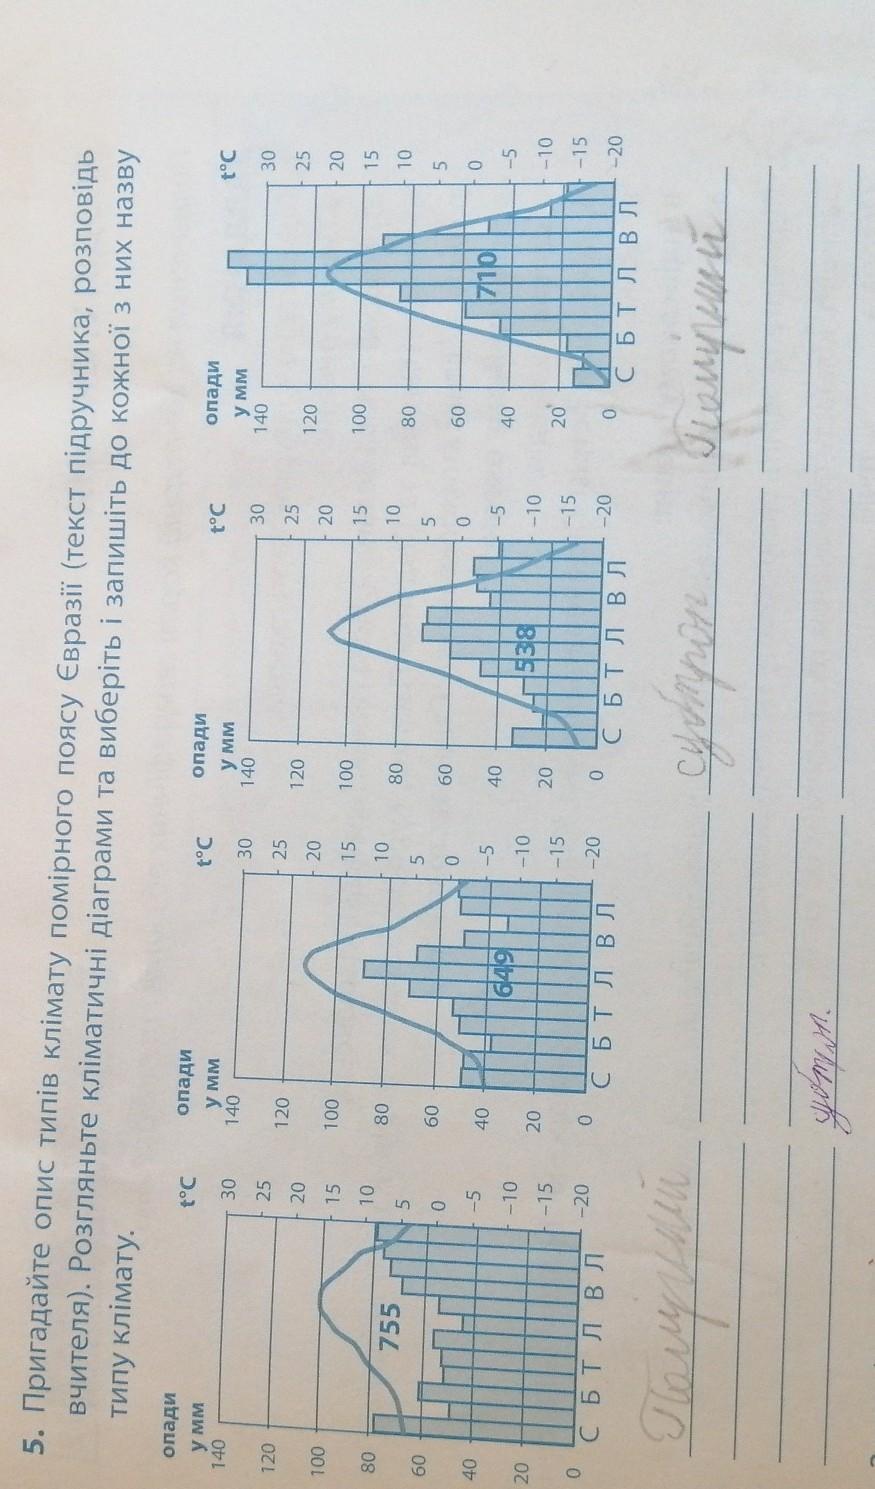 5. Пригадайте опис типів клімату помірного поясу Євразії (текст підручника, розповідь
вчителя). Розгляньте кліматичні діаграми та виберіть і запишіть до кожної з них назву
типу клімату.
опади
у мм
t°C
140
120
100
80
60
40
20
0
30
25
20
15
10
5
0
−5
−10
−15
−20
755
С Б Т Л В Л
опади
у мм
t°C
140
120
100
80
60
40
20
0
30
25
20
15
10
5
0
−5
−10
−15
−20
649
С Б Т Л В Л
опади
у мм
t°C
140
120
100
80
60
40
20
0
30
25
20
15
10
5
0
−5
−10
−15
−20
538
С Б Т Л В Л
опади
у мм
t°C
140
120
100
80
60
40
20
0
30
25
20
15
10
5
0
−5
−10
−15
−20
710
С Б Т Л В Л
субтроп